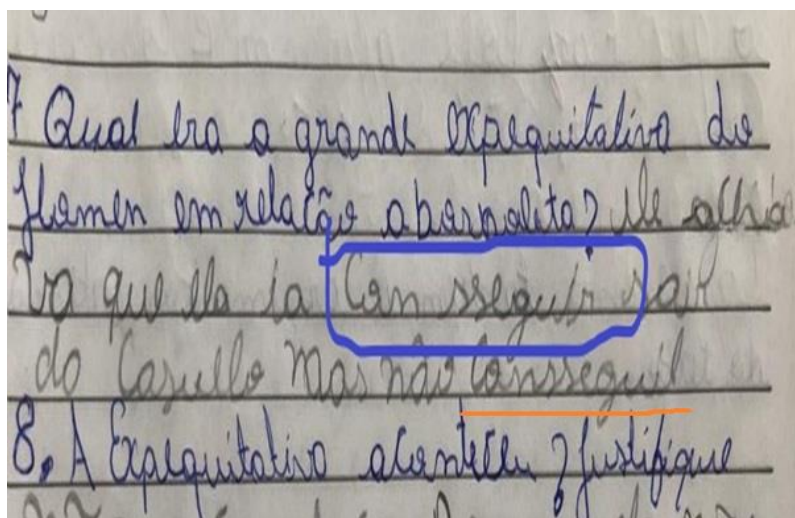 7 Qual era a grande expequitativa do
Homen em relação aborpoleta? Ele achia
va que ela ia Con sseguir sair
do Casullo mas não Consseguil
8. A Expequitativa aconteceu? justifique